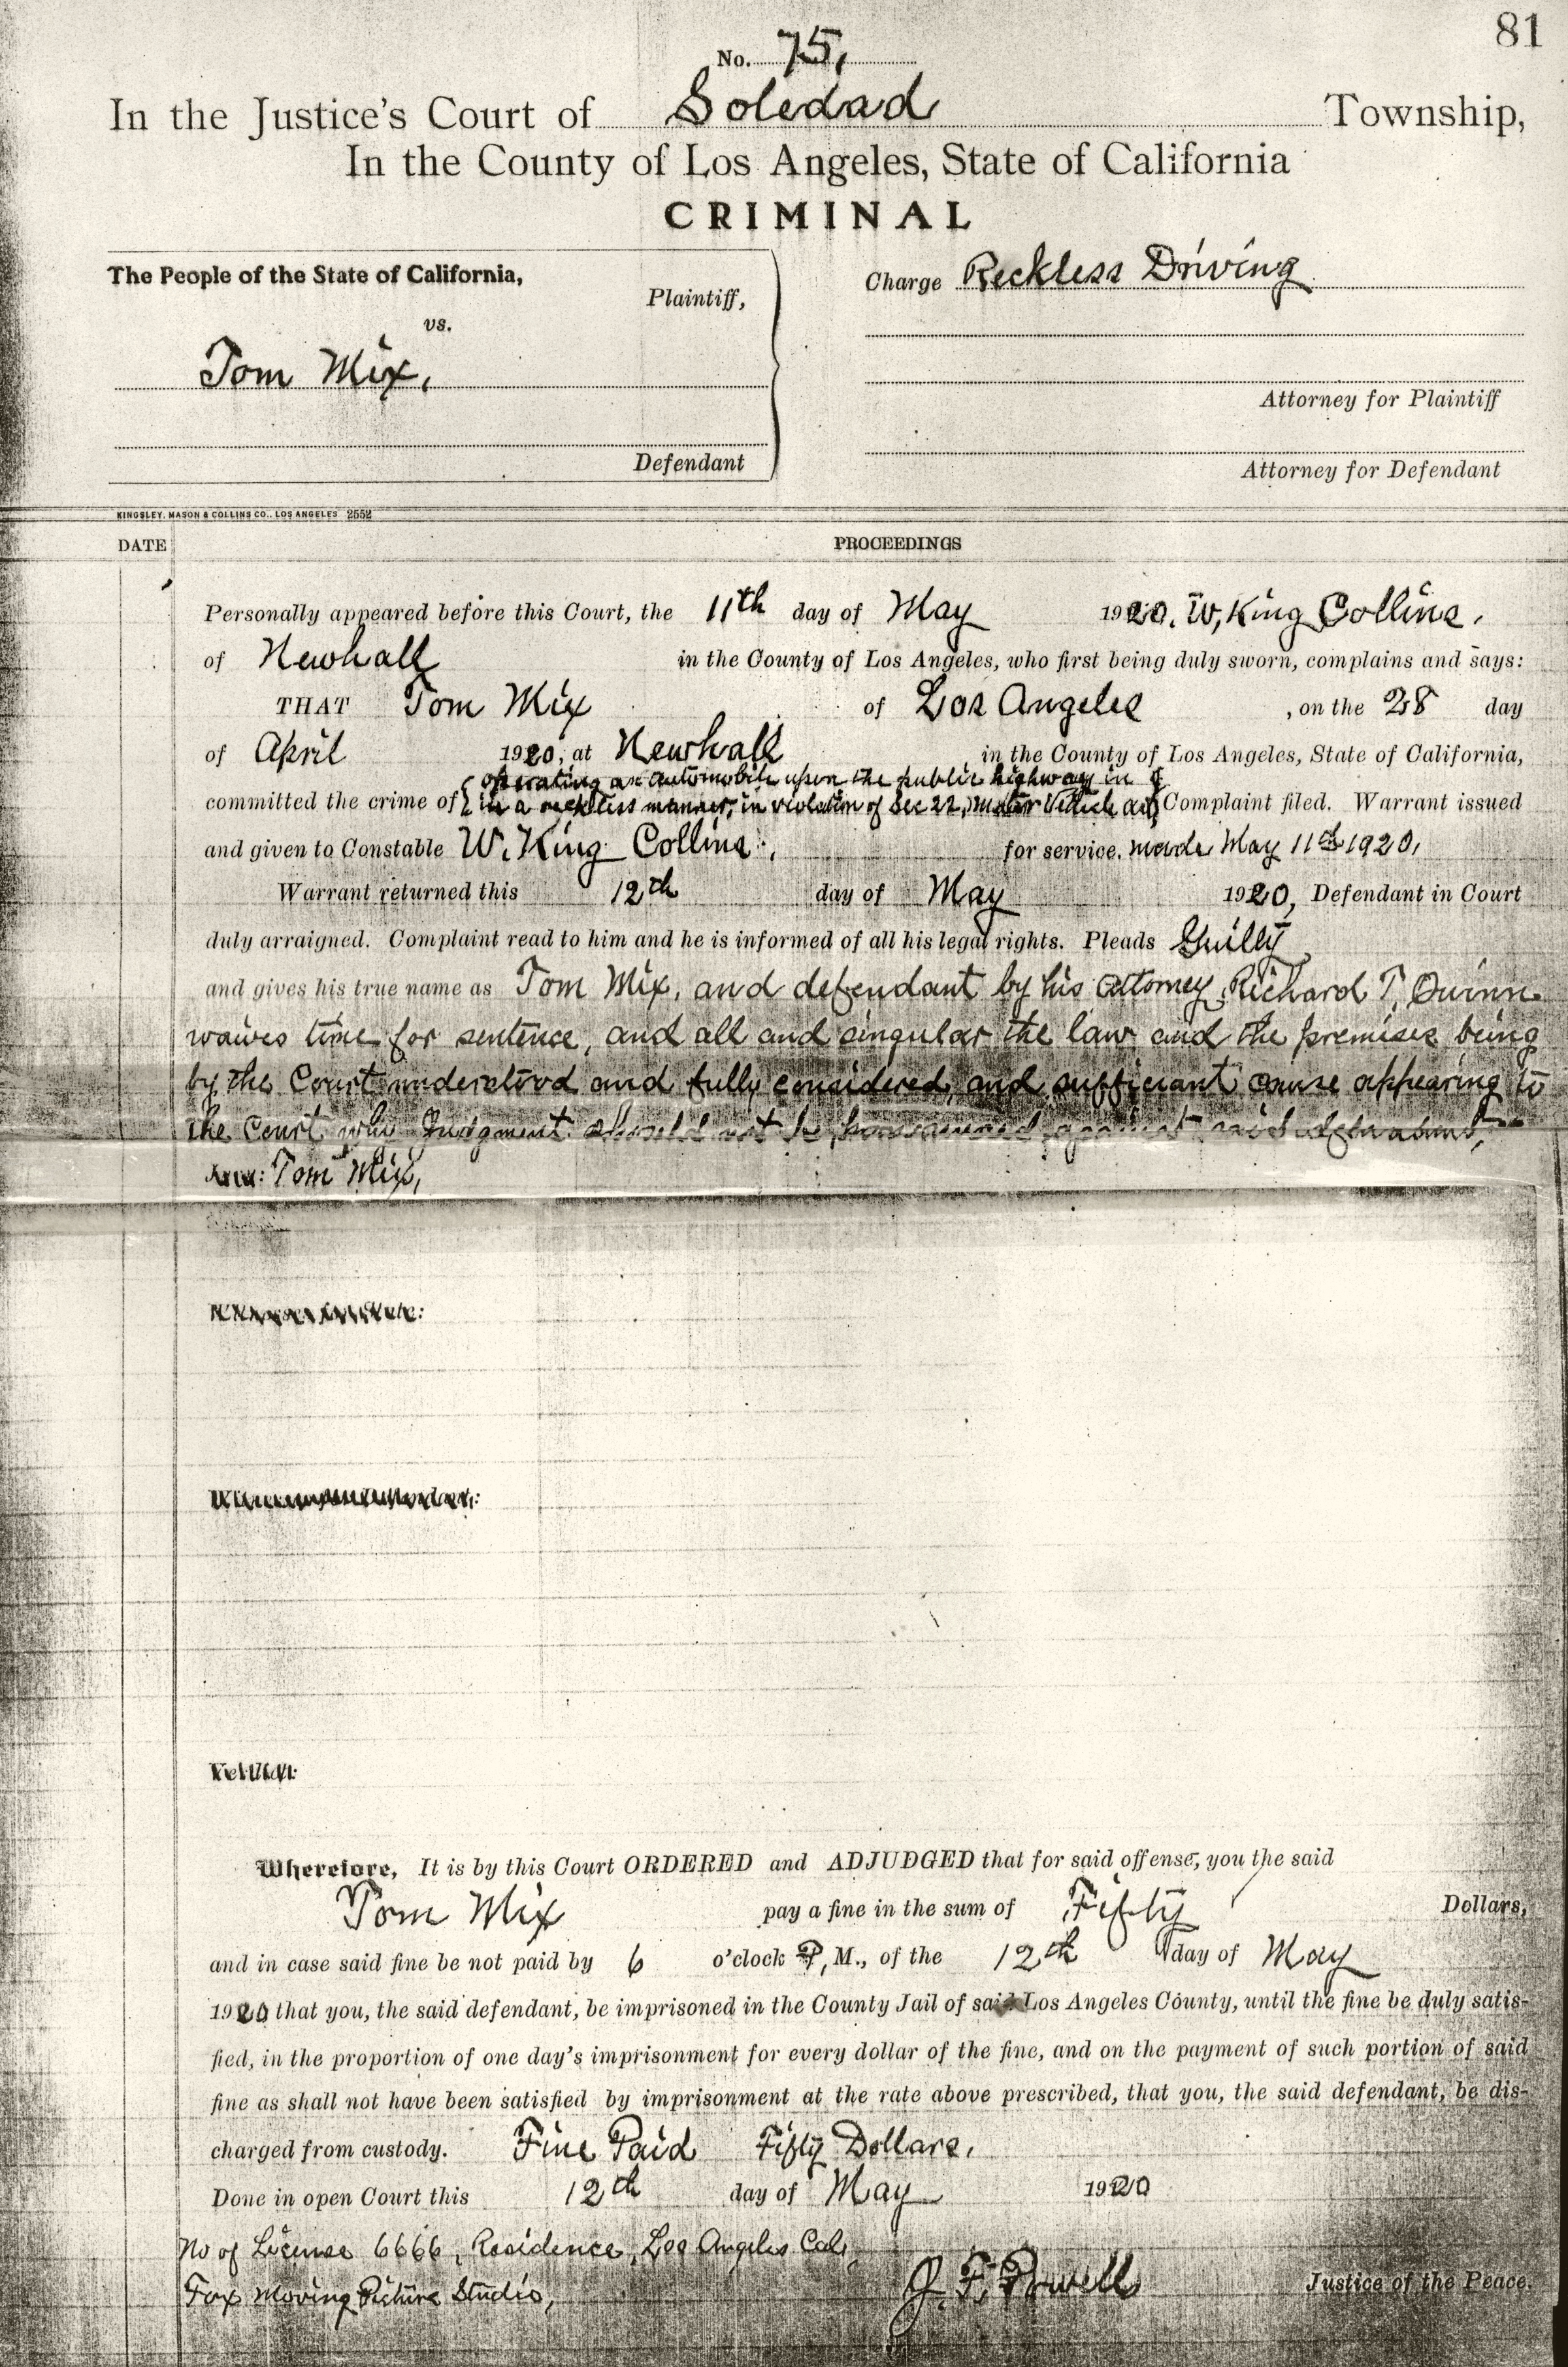 81
No. 75,
In the Justice's Court of Soledad Township,
In the County of Los Angeles, State of California
CRIMINAL
The People of the State of California,
Plaintiff,
vs.
Tom Mix,
Defendant
Charge Reckless Driving
Attorney for Plaintiff
Attorney for Defendant
KINGSLEY, MASON & COLLINS CO., LOS ANGELES 2552
DATE PROCEEDINGS
Personally appeared before this Court, the 11th day of May 1920. W, King Collins,
of Newhall in the County of Los Angeles, who first being duly sworn, complains and says:
THAT Tom Mix of Los Angeles, on the 28 day
of April 1920, at Newhall in the County of Los Angeles, State of California,
operating an automobile upon the public highway in
committed the crime of in a reckless manner, in violation of Sec 22, Motor Vehicle act, Complaint filed. Warrant issued
and given to Constable W. King Collins, for service. made May 11th 1920,
Warrant returned this 12th day of May 1920, Defendant in Court
duly arraigned. Complaint read to him and he is informed of all his legal rights. Pleads Guilty
and gives his true name as Tom Mix, and defendant by his attorney, Richard T, Quinn
waives time for sentence, and all and singular the law and the premises being
by the Court understood and fully considered, and sufficient cause appearing to
the Court why Judgment should not be pronounced against said defendant,
Tom Mix,
Wherefore, It is by this Court ORDERED and ADJUDGED that for said offense, you the said
Tom Mix pay a fine in the sum of Fifty Dollars,
and in case said fine be not paid by 6 o'clock P, M., of the 12th day of May
1920 that you, the said defendant, be imprisoned in the County Jail of said Los Angeles County, until the fine be duly satis-
fied, in the proportion of one day's imprisonment for every dollar of the fine, and on the payment of such portion of said
fine as shall not have been satisfied by imprisonment at the rate above prescribed, that you, the said defendant, be dis-
charged from custody. Fine Paid Fifty Dollars.
Done in open Court this 12th day of May 1920
No of License 6666, Residence, Los Angeles Cal,
Fox Moving Picture Studio,
J. F. Powell Justice of the Peace.